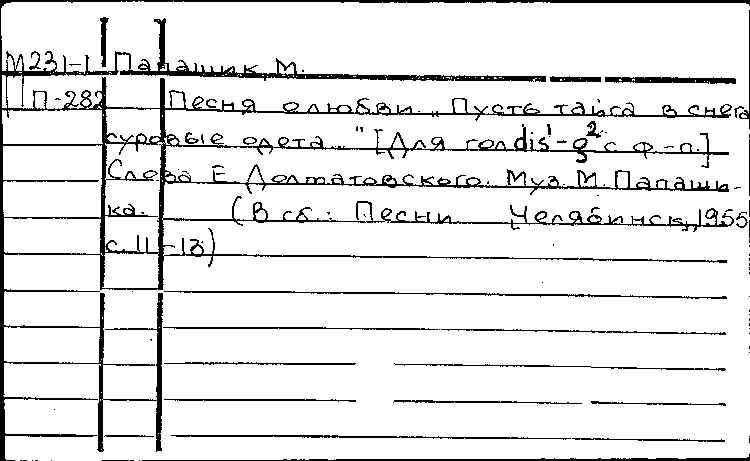 М231-1 Папашик, М.
П-282 Песня о любви. „Пусть тайга в снега
суровые одета..." [Для гол dis¹-g² с ф.-п.]
Слова Е Долматовского. Муз. М. Папаши-
ка. (В сб.: Песни Челябинск, 1955
с. 11-13)